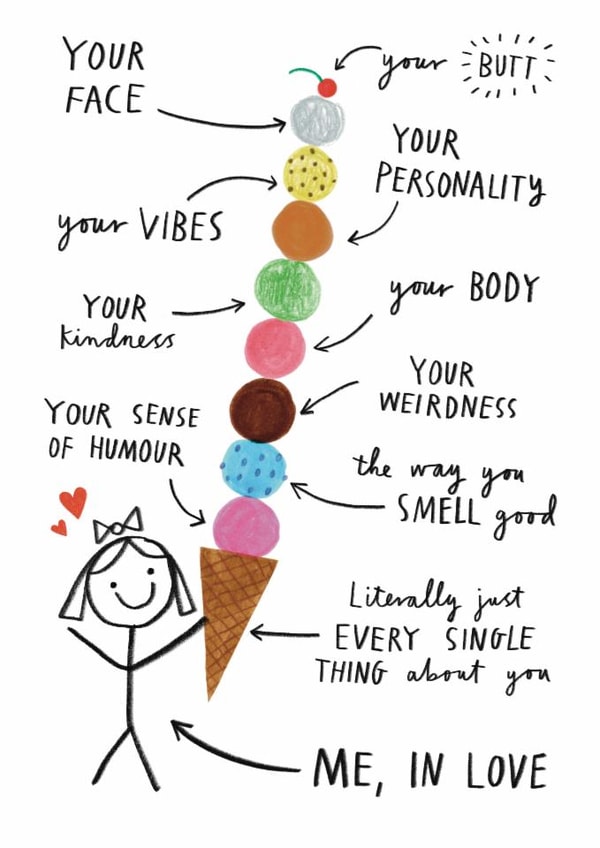 YOUR
FACE
your BUTT
YOUR
PERSONALITY
your VIBES
your BODY
YOUR
kindness
YOUR
WEIRDNESS
YOUR SENSE
OF HUMOUR
the way you
SMELL good
Literally just
EVERY SINGLE
THING about you
ME, IN LOVE